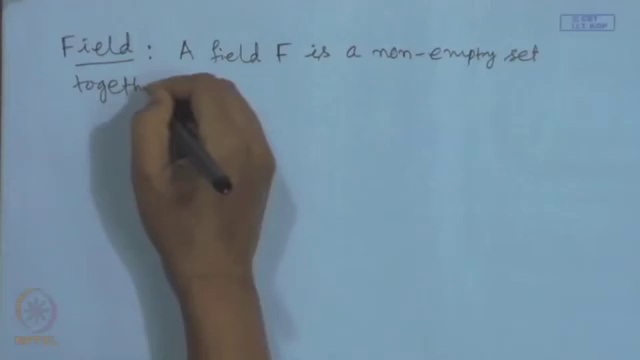 Field : A field F is a non-empty set
togeth